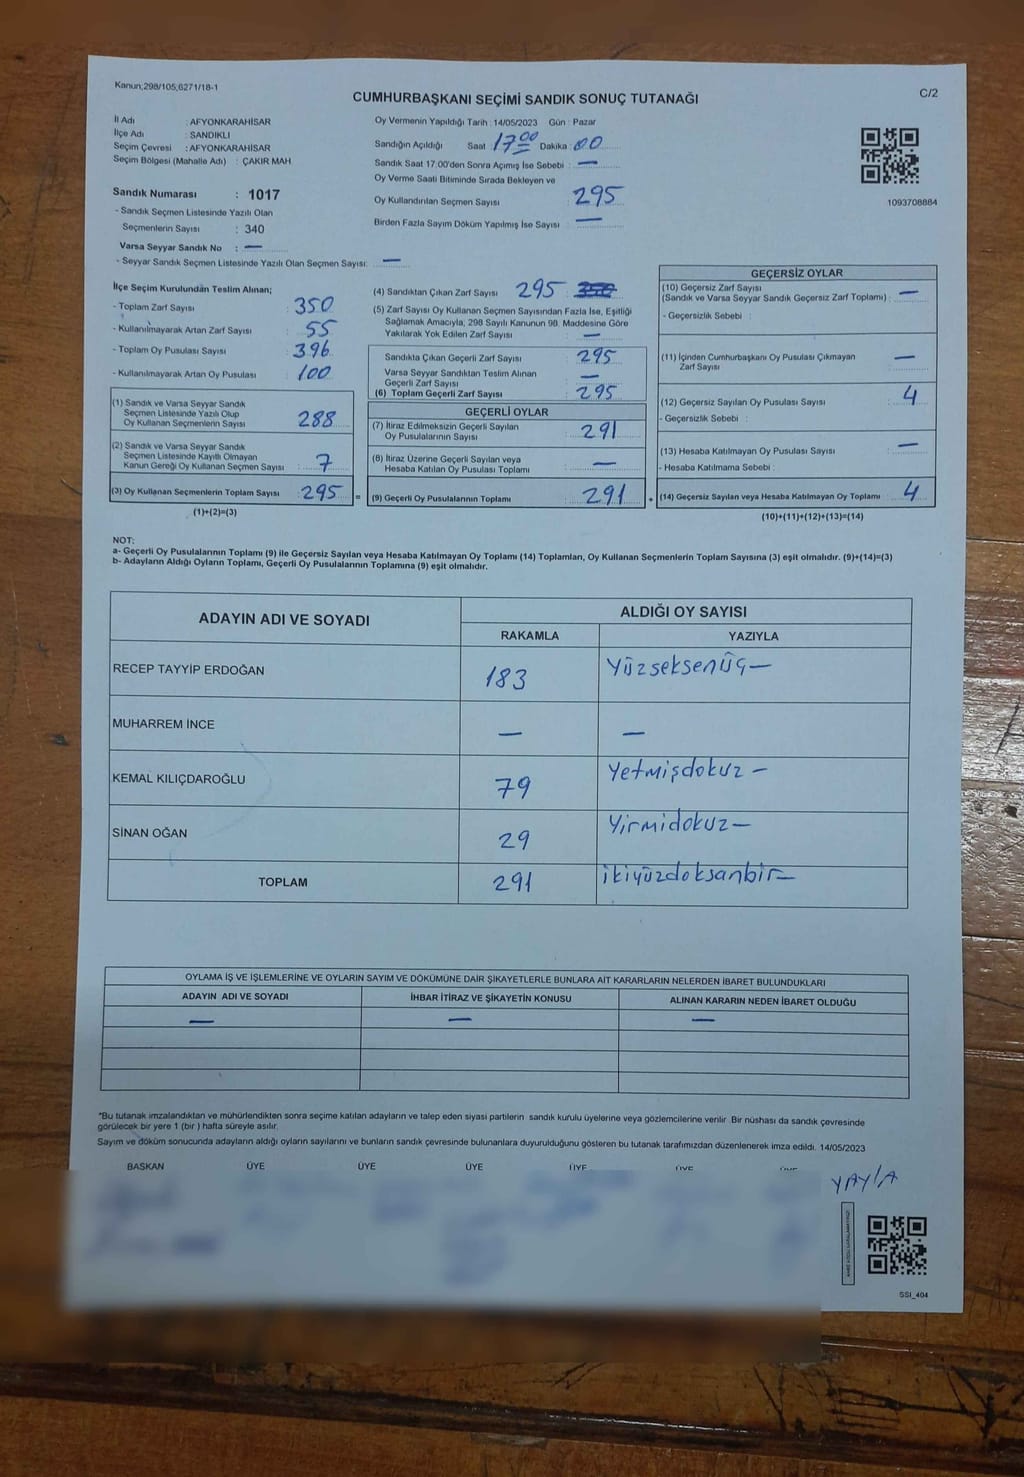 Kanun;298/105,6271/18-1
CUMHURBAŞKANI SEÇİMİ SANDIK SONUÇ TUTANAĞI
C/2
İl Adı : AFYONKARAHİSAR
İlçe Adı : SANDIKLI
Seçim Çevresi : AFYONKARAHİSAR
Seçim Bölgesi (Mahalle Adı) : ÇAKIR MAH
Sandık Numarası : 1017
- Sandık Seçmen Listesinde Yazılı Olan
Seçmenlerin Sayısı : 340
Varsa Seyyar Sandık No : —
- Seyyar Sandık Seçmen Listesinde Yazılı Olan Seçmen Sayısı: —
Oy Vermenin Yapıldığı Tarih : 14/05/2023 Gün : Pazar
Sandığın Açıldığı Saat : 17 00 Dakika : 00
Sandık Saat 17:00'den Sonra Açımış İse Sebebi : —
Oy Verme Saati Bitiminde Sırada Bekleyen ve
Oy Kullandırılan Seçmen Sayısı : 295
Birden Fazla Sayım Döküm Yapılmış İse Sayısı : —
1093708884
İlçe Seçim Kurulundan Teslim Alınan;
- Toplam Zarf Sayısı : 350
- Kullanılmayarak Artan Zarf Sayısı : 55
- Toplam Oy Pusulası Sayısı : 396
- Kullanılmayarak Artan Oy Pusulası : 100
(1) Sandık ve Varsa Seyyar Sandık
Seçmen Listesinde Yazılı Olup
Oy Kullanan Seçmenlerin Sayısı : 288
(2) Sandık ve Varsa Seyyar Sandık
Seçmen Listesinde Kayıtlı Olmayan
Kanun Gereği Oy Kullanan Seçmen Sayısı : 7
(3) Oy Kullanan Seçmenlerin Toplam Sayısı : 295 =
(1)+(2)=(3)
(4) Sandıktan Çıkan Zarf Sayısı : 295
(5) Zarf Sayısı Oy Kullanan Seçmen Sayısından Fazla İse, Eşitliği
Sağlamak Amacıyla, 298 Sayılı Kanunun 98. Maddesine Göre
Yakılarak Yok Edilen Zarf Sayısı : —
Sandıkta Çıkan Geçerli Zarf Sayısı : 295
Varsa Seyyar Sandıktan Teslim Alınan
Geçerli Zarf Sayısı : —
(6) Toplam Geçerli Zarf Sayısı : 295
GEÇERLİ OYLAR
(7) İtiraz Edilmeksizin Geçerli Sayılan
Oy Pusulalarının Sayısı : 291
(8) İtiraz Üzerine Geçerli Sayılan veya
Hesaba Katılan Oy Pusulası Toplamı : —
(9) Geçerli Oy Pusulalarının Toplamı : 291 +
GEÇERSİZ OYLAR
(10) Geçersiz Zarf Sayısı
(Sandık ve Varsa Seyyar Sandık Geçersiz Zarf Toplamı) : —
- Geçersizlik Sebebi :
(11) İçinden Cumhurbaşkanı Oy Pusulası Çıkmayan
Zarf Sayısı : —
(12) Geçersiz Sayılan Oy Pusulası Sayısı : 4
- Geçersizlik Sebebi :
(13) Hesaba Katılmayan Oy Pusulası Sayısı : —
- Hesaba Katılmama Sebebi :
(14) Geçersiz Sayılan veya Hesaba Katılmayan Oy Toplamı : 4
(10)+(11)+(12)+(13)=(14)
NOT:
a- Geçerli Oy Pusulalarının Toplamı (9) ile Geçersiz Sayılan veya Hesaba Katılmayan Oy Toplamı (14) Toplamları, Oy Kullanan Seçmenlerin Toplam Sayısına (3) eşit olmalıdır. (9)+(14)=(3)
b- Adayların Aldığı Oyların Toplamı, Geçerli Oy Pusulalarının Toplamına (9) eşit olmalıdır.
ADAYIN ADI VE SOYADI
ALDIĞI OY SAYISI
RAKAMLA YAZIYLA
RECEP TAYYİP ERDOĞAN 183 Yüzseksenüç—
MUHARREM İNCE — —
KEMAL KILIÇDAROĞLU 79 Yetmişdokuz —
SİNAN OĞAN 29 Yirmidokuz—
TOPLAM 291 ikiyüzdoksanbir—
OYLAMA İŞ VE İŞLEMLERİNE VE OYLARIN SAYIM VE DÖKÜMÜNE DAİR ŞİKAYETLERLE BUNLARA AİT KARARLARIN NELERDEN İBARET BULUNDUKLARI
ADAYIN ADI VE SOYADI İHBAR İTİRAZ VE ŞİKAYETİN KONUSU ALINAN KARARIN NEDEN İBARET OLDUĞU
— — —
*Bu tutanak imzalandıktan ve mühürlendikten sonra seçime katılan adayların ve talep eden siyasi partilerin sandık kurulu üyelerine veya gözlemcilerine verilir. Bir nüshası da sandık çevresinde
görülecek bir yere 1 (bir ) hafta süreyle asılır.
Sayım ve döküm sonucunda adayların aldığı oyların sayılarını ve bunların sandık çevresinde bulunanlara duyurulduğunu gösteren bu tutanak tarafımızdan düzenlenerek imza edildi. 14/05/2023
BAŞKAN ÜYE ÜYE ÜYE ÜYE ÜYE ÜYE
YAYLA
SSI_404